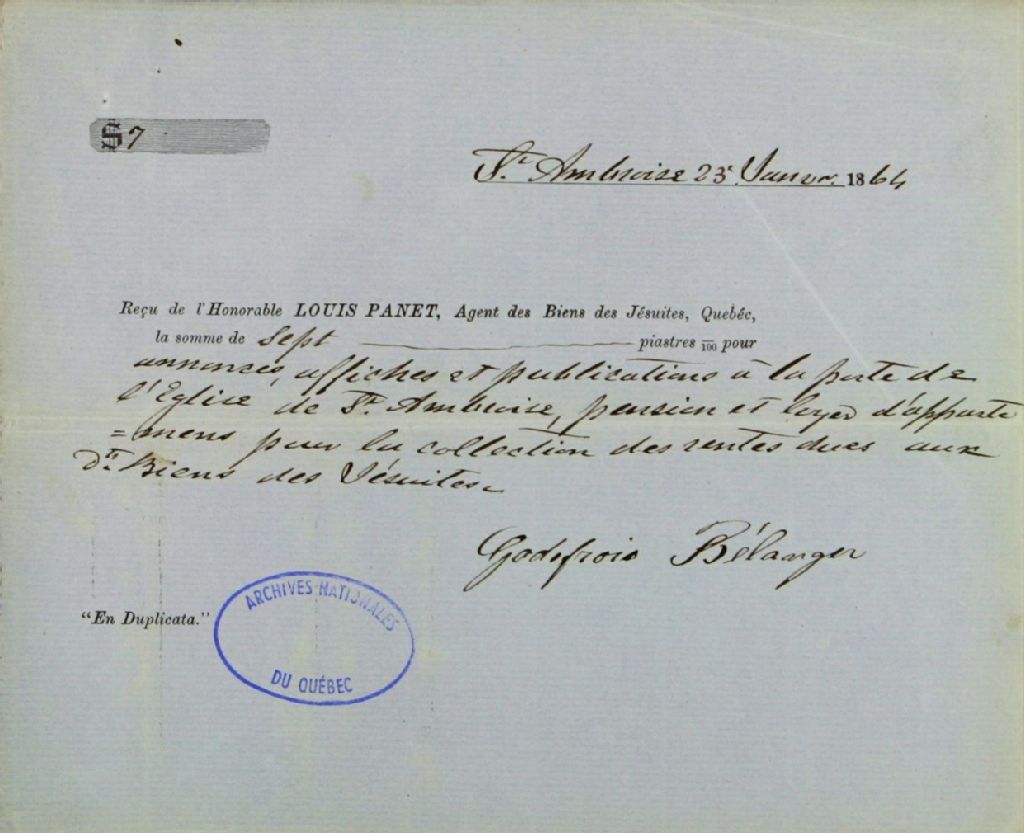 $7
St Ambroise 25 Janvr. 1864
Reçu de l'Honorable LOUIS PANET, Agent des Biens des Jésuites, Québéc,
la somme de Sept piastres /100 pour
annonces, affiches et publications à la porte de
l'Eglice de St. Ambroise, pension et loyer d'apparte
=mens pour la collection des rentes dues aux
Dts Biens des Jésuites.
Godefroie Bélanger
"En Duplicata."
ARCHIVES NATIONALES
DU QUÉBEC